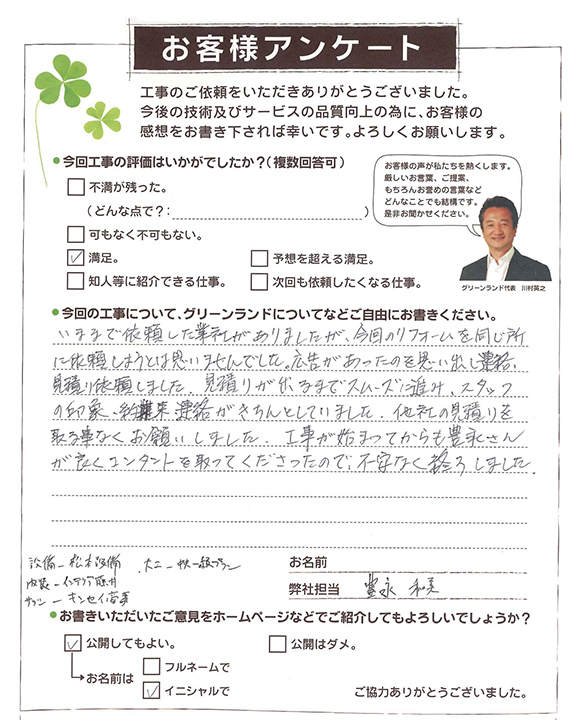 お客様アンケート
工事のご依頼をいただきありがとうございました。
今後の技術及びサービスの品質向上の為に、お客様の
感想をお書き下されば幸いです。よろしくお願いします。
●今回工事の評価はいかがでしたか?(複数回答可)
不満が残った。
(どんな点で?: )
可もなく不可もない。
満足。
予想を超える満足。
知人等に紹介できる仕事。
次回も依頼したくなる仕事。
お客様の声が私たちを熱くします。
厳しいお言葉、ご提案、
もちろんお誉めの言葉など
どんなことでも結構です。
是非お聞かせください。
グリーンランド代表 川村英之
●今回の工事について、グリーンランドについてなどご自由にお書きください。
いままで依頼した業社がありましたが、今回のリフォームを同じ所
に依頼しようとは思いませんでした。広告があったのを思い出し連絡、
見積り依頼しました。見積りが出るまでスムーズに進み、スタッフ
の印象、連絡がきちんとしていました。他社の見積りを
取る事なくお願いしました。工事が始まってからも豊永さん
が良くコンタントを取ってくださったので、不安なく終ろしました。
設備ー松本設備
大工ー
内装ーインテリア
キンセイ
お名前
弊社担当 豊永 和美
●お書きいただいたご意見をホームページなどでご紹介してもよろしいでしょうか?
公開してもよい。
公開はダメ。
お名前は
フルネームで
イニシャルで
ご協力ありがとうございました。